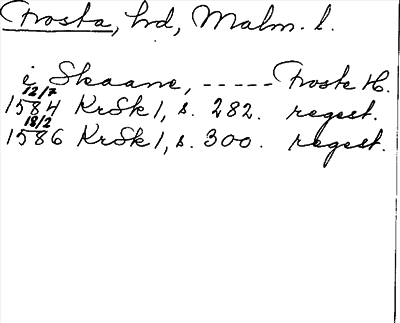 Frosta, hd, Malm. l.
i Skaane, ----- Froste H.
12/7
1584 KrSk 1, s. 282. regest.
18/2
1586 KrSk 1, s. 300. regest.